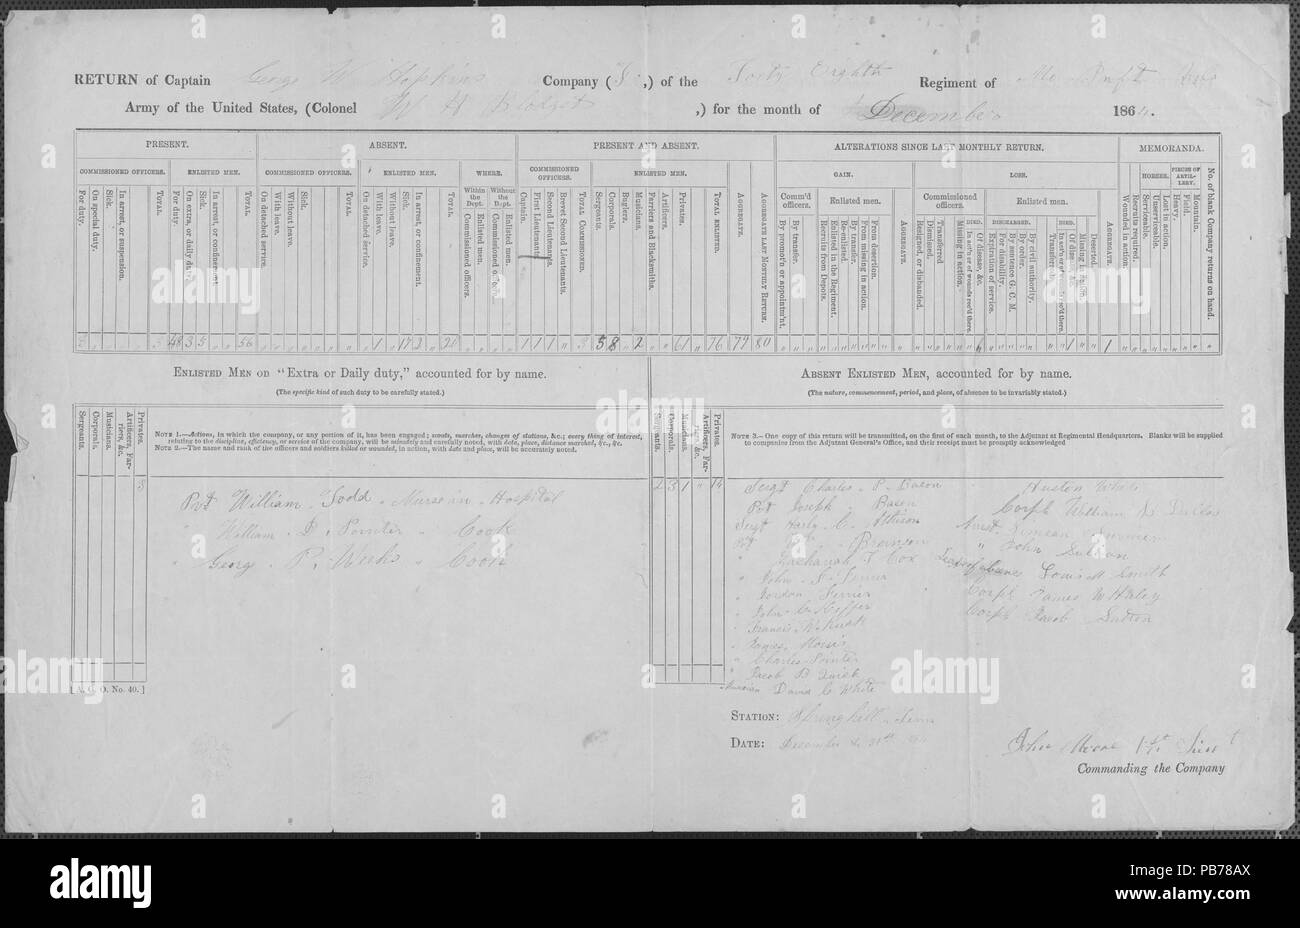 RETURN of Captain George W Hopkins Company ( ,) of the Forty Eighth Regiment of Mo Inft Vols
Army of the United States, (Colonel W H Blodget ,) for the month of December 1864.
PRESENT. ABSENT. PRESENT AND ABSENT. ALTERATIONS SINCE LAST MONTHLY RETURN. MEMORANDA.
COMMISSIONED OFFICERS. ENLISTED MEN. COMMISSIONED OFFICERS. ENLISTED MEN. WHERE. COMMISSIONED OFFICERS. ENLISTED MEN. GAIN. LOSS. HORSES. PIECES OF ARTILLERY.
Within the Dept. Without the Dept. Comm'd officers. Enlisted men. Commissioned officers. Enlisted men.
DIED. DISCHARGED. DIED.
For duty. On special duty. In arrest, or suspension. TOTAL. For duty. On extra, or daily duty. Sick. In arrest, or confinement. TOTAL.
On detached service. With leave. Without leave. Sick. TOTAL. On detached service. With leave. Without leave. Sick. In arrest, or confinement. TOTAL.
Commissioned officers. Enlisted men. Commissioned officers. Enlisted men.
Captain. First Lieutenants. Second Lieutenants. Brevet Second Lieutenants. TOTAL COMMISSIONED. Sergeants. Corporals. Buglers. Musicians. Farriers and Blacksmiths. Artificers. Privates. TOTAL ENLISTED. AGGREGATE. AGGREGATE LAST MONTHLY RETURN.
By promot'n or appointm'nt. By transfer. Recruits from Depots. Enlisted in the Regiment. Re-enlisted. By transfer. From missing in action. From desertion. AGGREGATE.
Resigned, or disbanded. Dismissed. Transferred Missing in action. In act'n or of wounds rec'd there. Of disease, &c. Expiration of service. For disability. By sentence G. C. M. By order. By civil authority. Transferred. In act'n or of wounds rec'd there. Of disease, &c. Missing in action. Deserted. AGGREGATE.
Wounded in action. Recruits required. Serviceable. Unserviceable. Lost in action. Heavy. Field. Mountain. No. of blank Company returns on hand.
3 48 3 5 56 1 17 2 20 1 1 1 3 5 8 2 61 76 79 80 1 1
ENLISTED MEN ON "Extra or Daily duty," accounted for by name. ABSENT ENLISTED MEN, accounted for by name.
(The specific kind of such duty to be carefully stated.) (The nature, commencement, period, and place, of absence to be invariably stated.)
Sergeants. Corporals. Musicians. Artificers, Farriers, &c. Privates.
NOTE 1.—Actions, in which the company, or any portion of it, has been engaged; scouts, marches, changes of stations, &c.; every thing of interest,
relating to the discipline, efficiency, or service of the company, will be minutely and carefully noted, with date, place, distance marched, &c., &c.
NOTE 2.—The name and rank of the officers and soldiers killed or wounded, in action, with date and place, will be accurately noted.
Sergeants. Corporals. Musicians. Artificers, Farriers, &c. Privates.
NOTE 3.—One copy of this return will be transmitted, on the first of each month, to the Adjutant at Regimental Headquarters. Blanks will be supplied
to companies from the Adjutant General's Office, and their receipt must be promptly acknowledged
3
Pvt William Todd Nurse in Hospital
" William D. Pointer " Cook
" George P. Weeks " Cook
2 3 1 " 14
Sergt Charles P. Bacon
Pvt Joseph Bacon
Sergt Harly C. Allison
Pvt Bronson
" Zachariah T Cox
" John S.
" Jordan Ferrier
" John
" Francis
" James Morris
" Charles Pointer
" Jacob B Quick
Musician David C White
Huston White
Corpl William
Simean
" John Sullivan
Louis M Smith
Corpl James W Haley
Corpl Jacob Sutton
[A. G. O. No. 40.]
STATION: Springhill Tenn
DATE: December 31st
John 1st Lieut
Commanding the Company
alamy
PB78AX
www.alamy.com